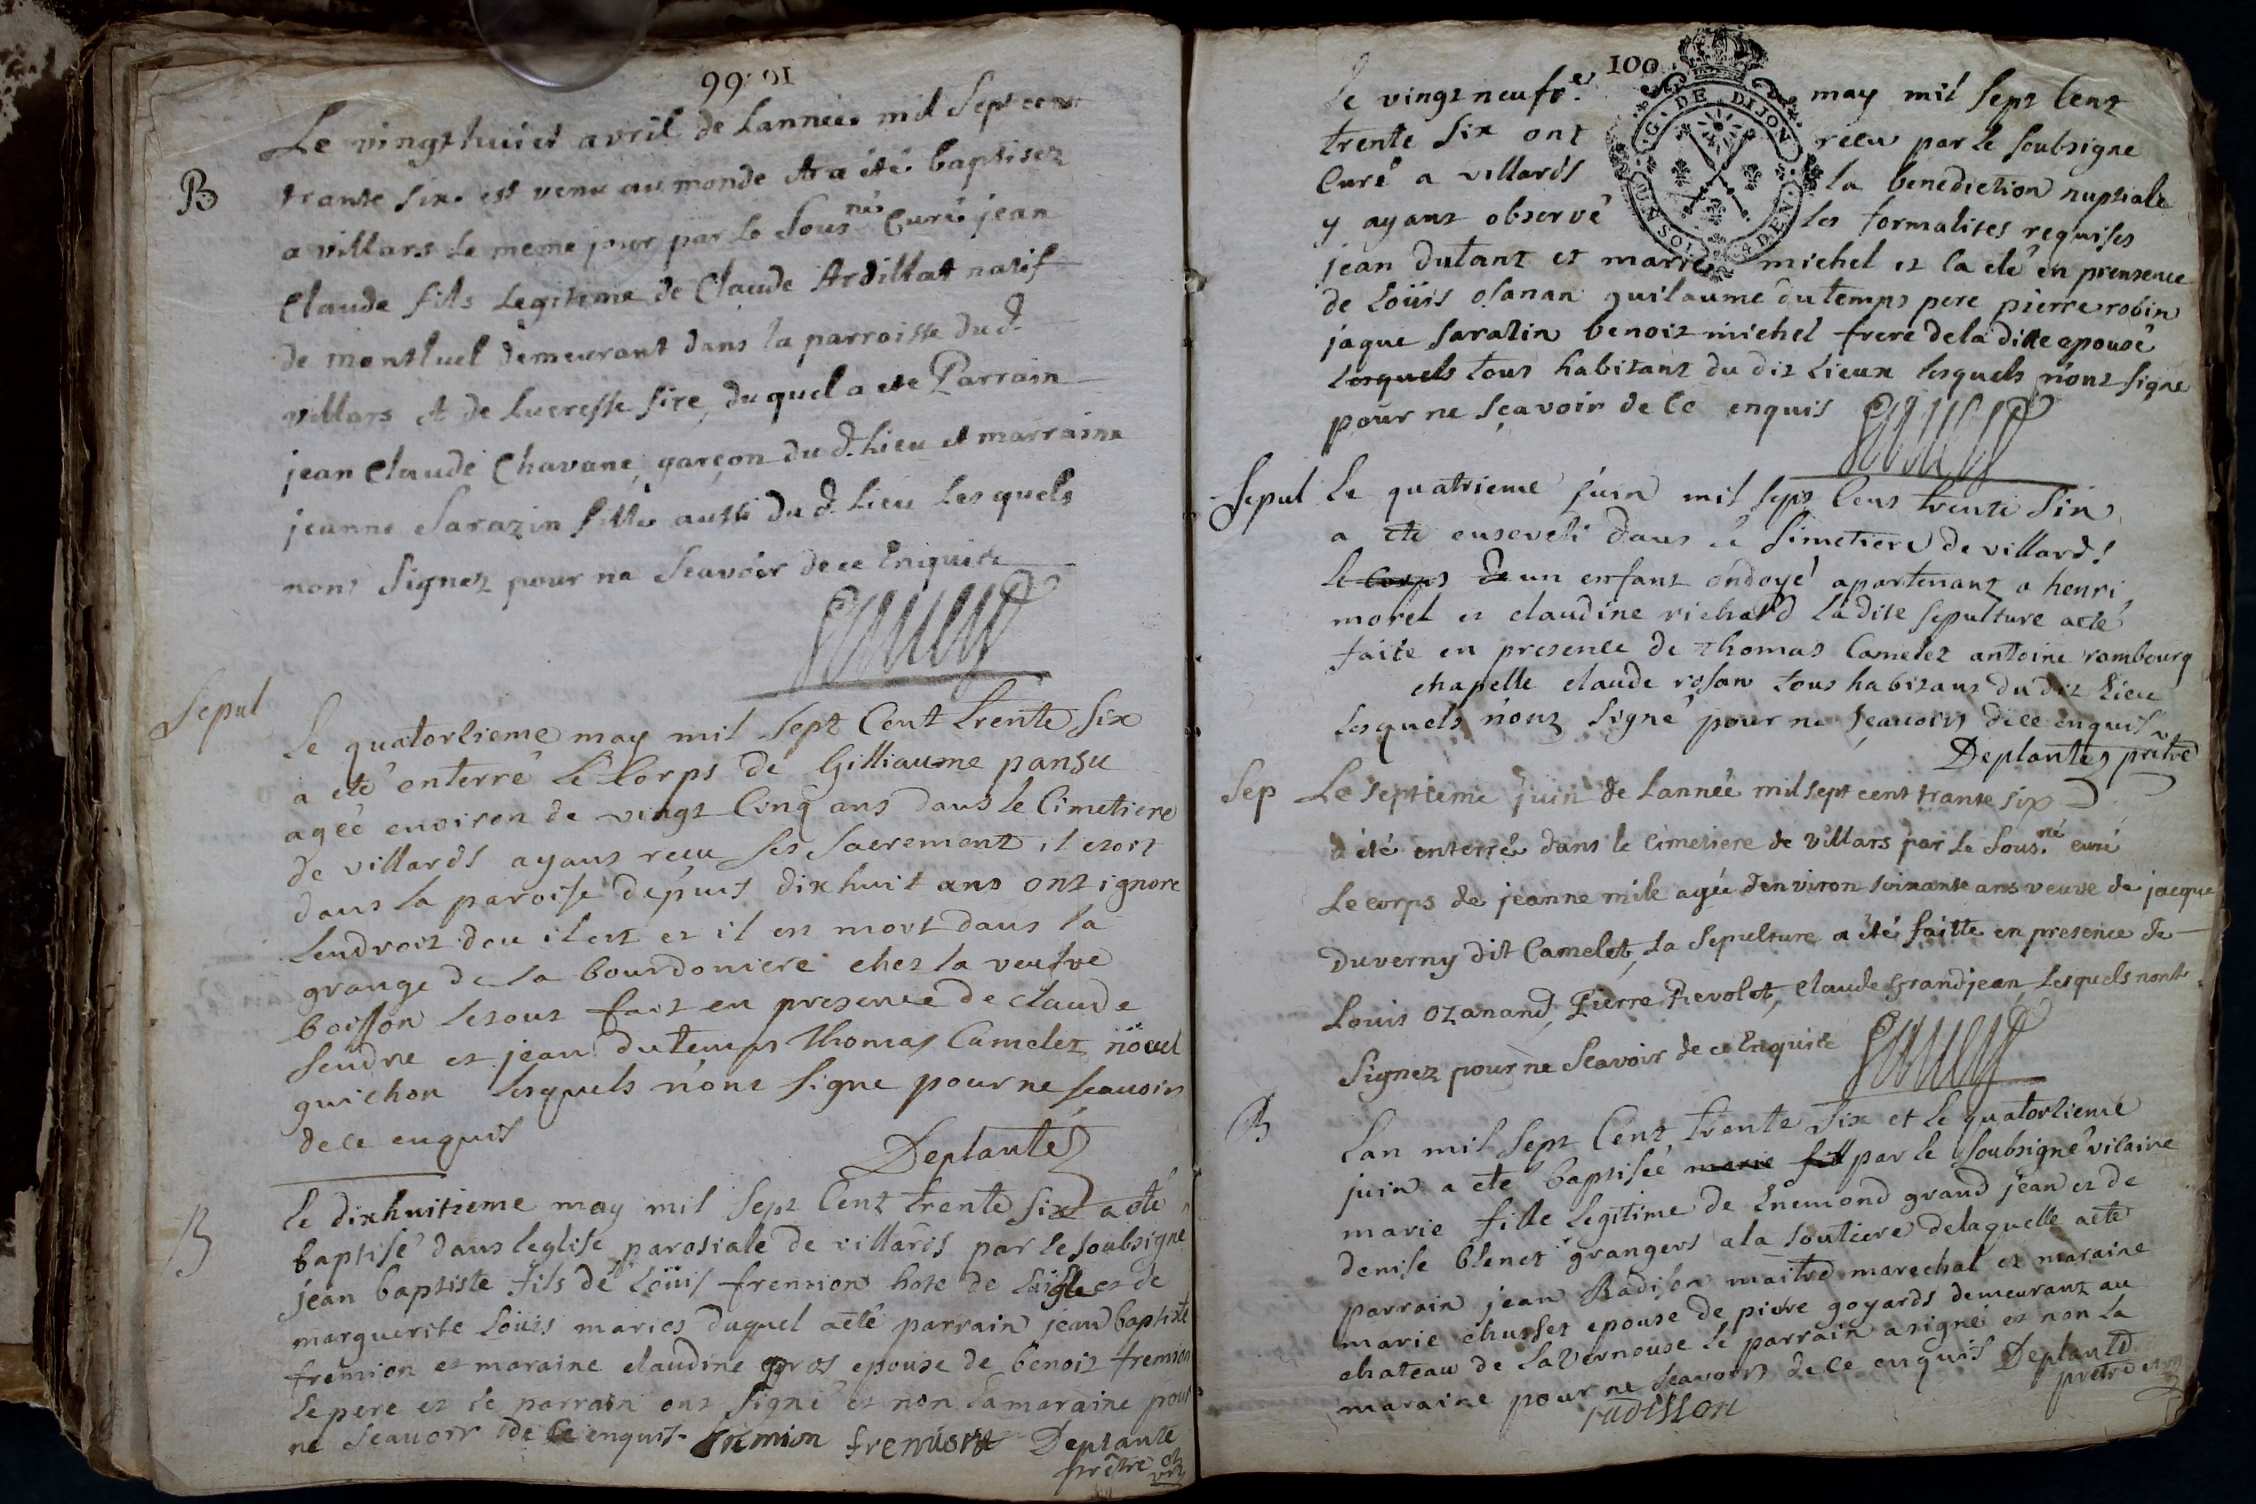 99
Le vingt huict avril de Lannée mil Sept cent
B
trante Six est venu au monde et a été baptisez
a villars Le meme jour par Le Sous.né Curé jean
Claude fils Legitime de Claude Ardillat natif
de montluel demeurant dans la parroisse du d.
villars et de Lucresse Sire, duquel a ete Parrain
jean Claude Chavane, garçon du d. Lieu et marraine
jeanne Sarazin fille aussi du d. Lieu Les quels
nont Signez pour ne Scavoir de ce Enquite
Sepul
le quatorzieme may mil sept Cent trente six
a eté enterré le Corps de Gilliaume pansu
agéé environ de vingt Cinq ans dans le Cimetiere
de villards ayant recu ses Sacrement il etoit
dans la paroise depuis dix huit ans ont ignore
lendroit dou il est et il est mort dans la
grange de la bourdoniere chez la veufve
boisson le tout fait en presence de claude
et jean dutemps thomas Camelet nöuel
guichon lesquels nont signe pour ne scauoir
de ce enquis
Deplante
B
le dixhuitieme may mil sept Cent trente six a eté
baptisé dans leglise parosiale de villards par le soubsigné
jean baptiste fils de Loüis fremion hote de Laigle et de
marguerite Loüis maries duquel a eté parrain jean baptiste
fremion et maraine claudine gros epouse de benoit fremion
le pere et le parrain ont signé et non la maraine pour
ne scauoir de ce enquis fremion fremion Deplante
prêtre et vic
100
G. DE DIJON
UN SOL 4 DEN
le vingt neufe. may mil sept Cent
trente six ont recu par le soubsigne
Curé a villards la benediction nuptiale
y ayant observé les formalites requises
jean dutant et marre michel et la eté en prensence
de Loüis osanan guilaume du temps pere pierre robin
jaque saratin benoit michel frere de la ditte epouse
lesquels tous habitant du dit Lieux lesquels nont signe
pour ne sçavoir de ce enquis
Sepul
le quatrieme juin mil sept Cens trente six
a eté enseveli dans le simetiere de villards
le corps de un enfant ondoyé apartenant a henri
morel et claudine richard la dite sepulture a eté
faite en presence de thomas Camelet antoine rambourg
chapelle claude rosan tous habitans du dit Lieu
lesquels nont signé pour ne sçauoir de ce enquis
Deplante prêtre
Sep
Le septieme juin de Lannéé mil sept cent trante six
a été enterréé dans le cimetiere de villars par Le Sous.né curé
Le corps de jeanne mile agée denviron soixante ans veuve de jacque
Duverny dit Camelet, La Sepulture a été faitte en presence de
Louis ozanand, Pierre Revolet, Claude Grandjean, Lesquels nont
Signez pour ne Scavoir de ce Enquite
B
Lan mil sept Cent trente six et le quatorzieme
juin a eté baptiséé marie fill par le soubsigné vicaire
marie fille legitime de Enemond grand jean et de
denise blenet grangers a la Soutiere de laquelle a eté
parrain jean Radison maitre marechal et maraine
marie chusset epouse de piere goyards demeurant au
chateau de la Vernouse le parrain a signé et non la
maraine pour ne scauoir de ce enquis Deplante
prêtre et vic
radisson